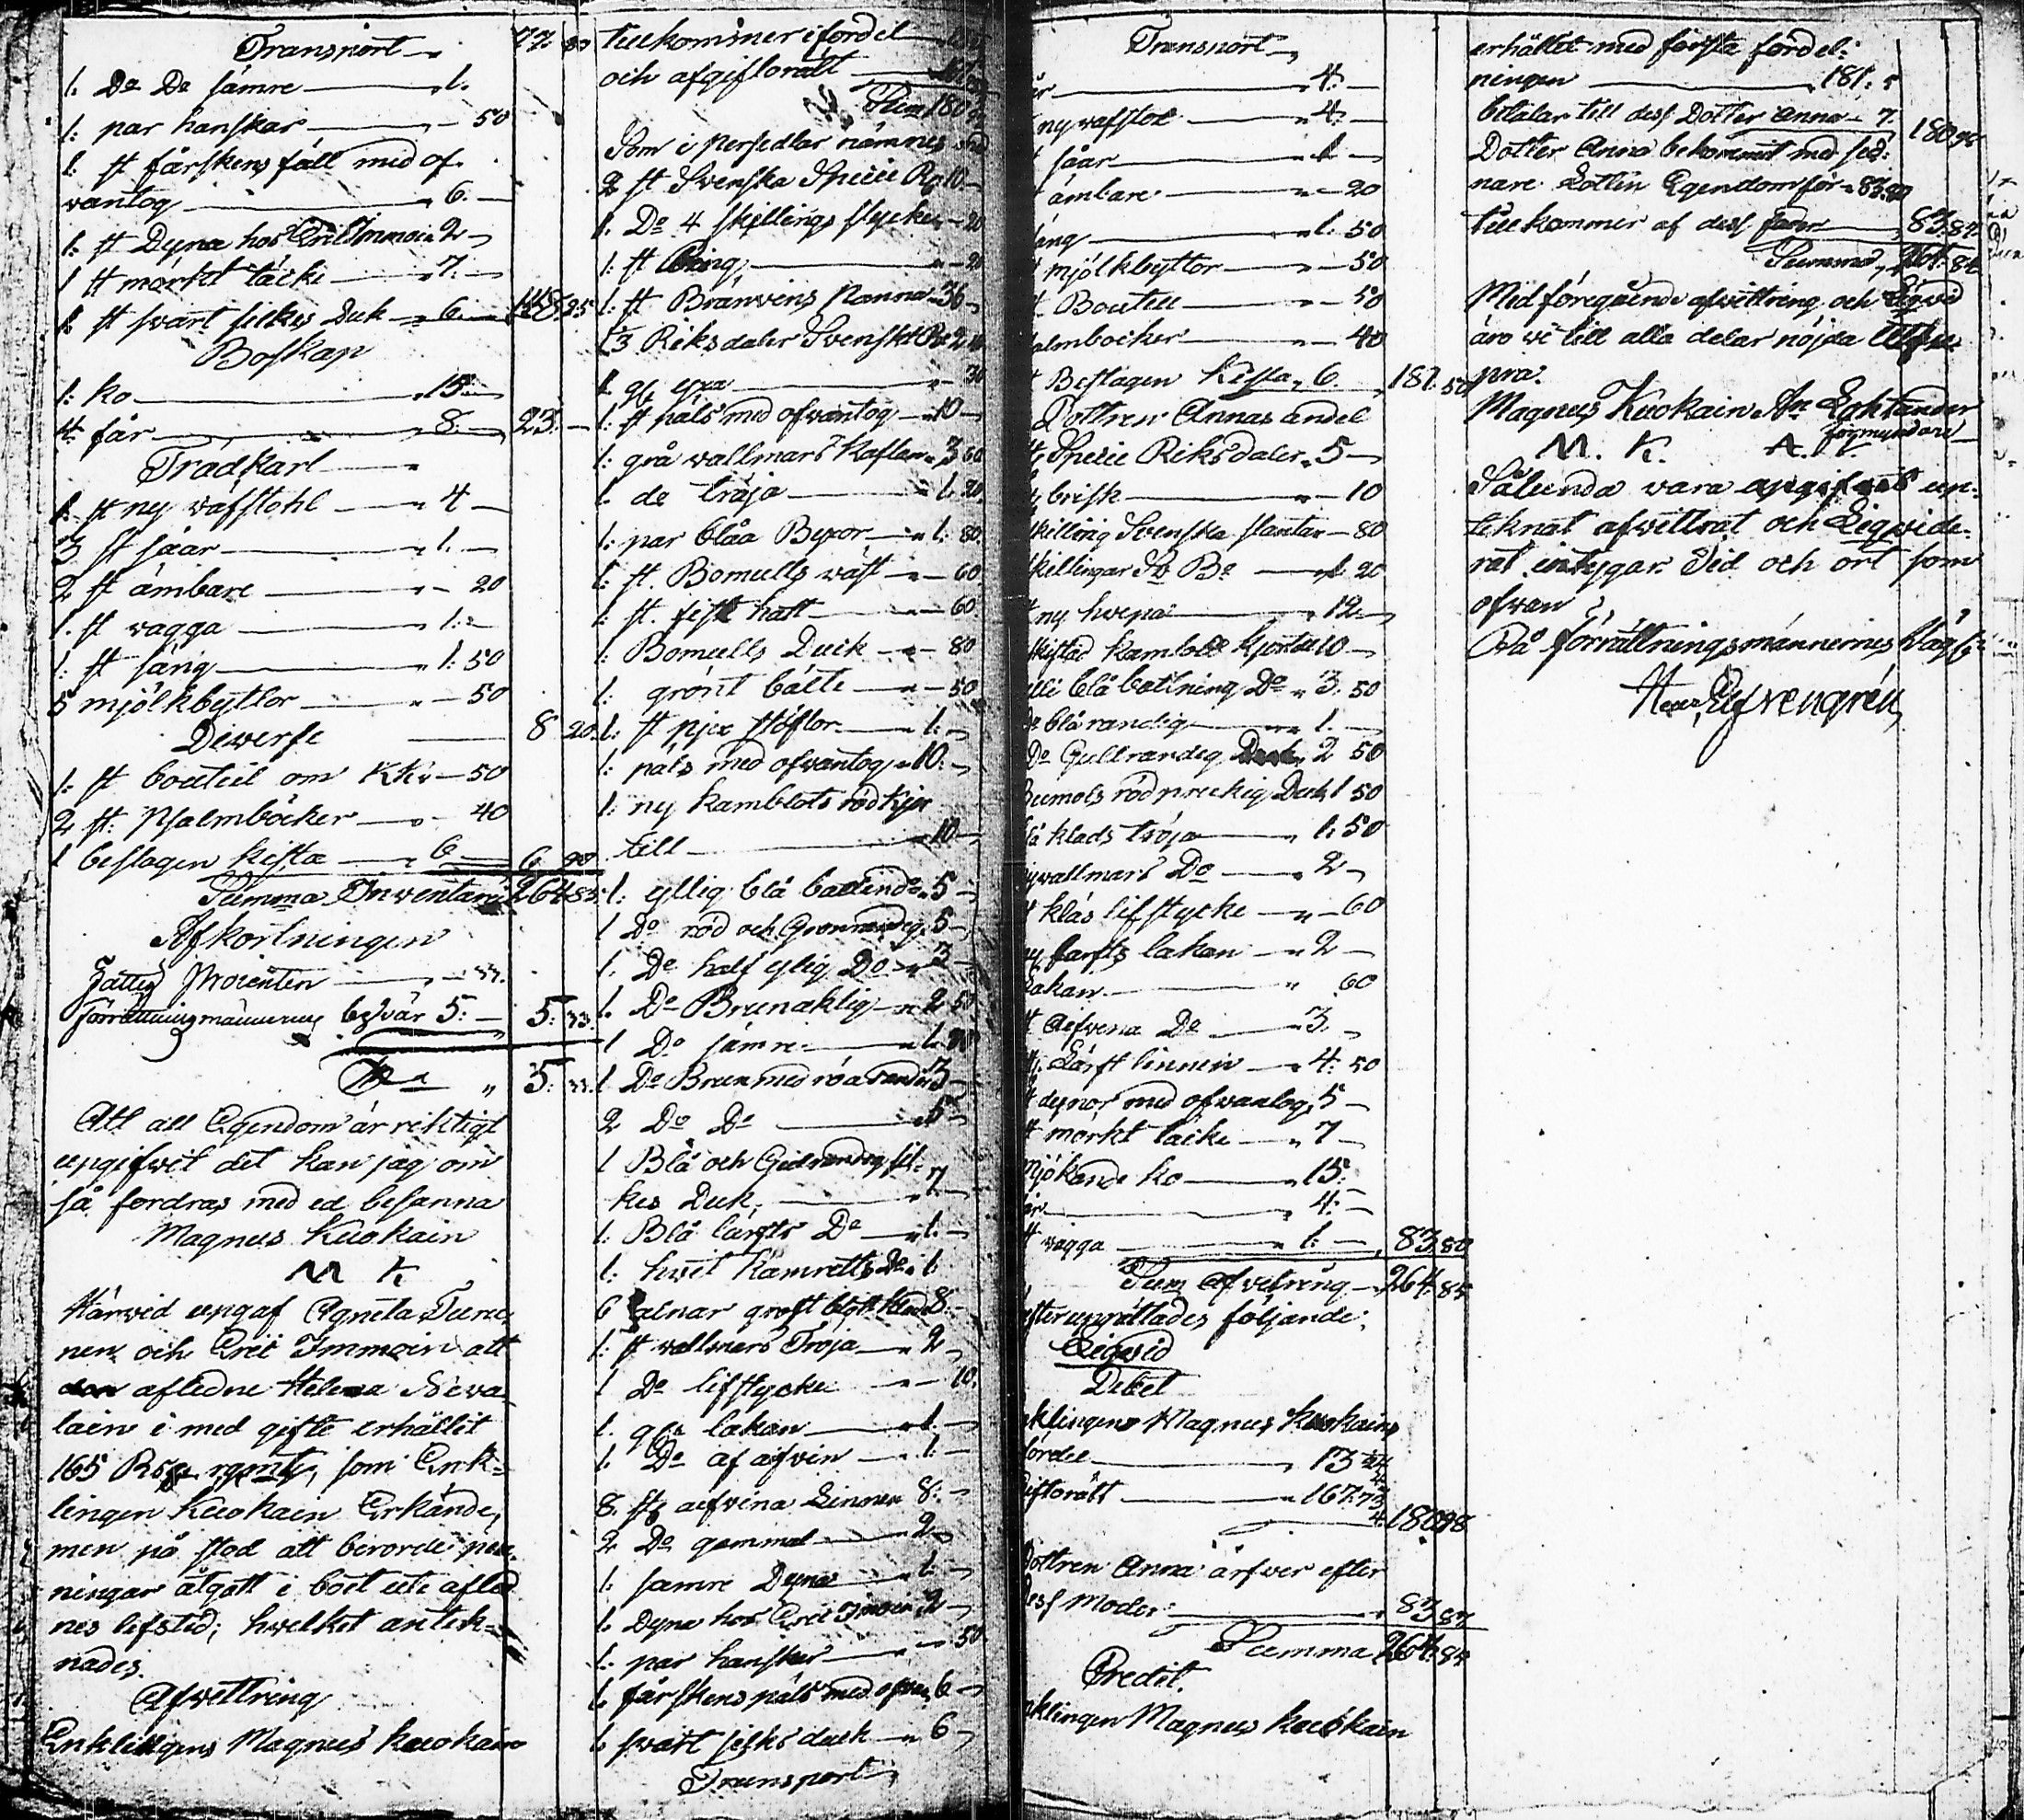 Transport 77 80
1. Do Do sämre 1.
1: par hanskar 50
1: st fårskens fäll med of-
vantog 6.
1: st Dyna hos Eric Immoin 2
1 st mörkt täcke 7.
1. st svart silkes Duk 6. 148 25
Boskap
1: ko 15
4 får 8. 23.
Trädkärl
1. st ny väfstohl 4
3 st såar 1.
2 st ämbare 20
1. st vagga 1:
1: st säng 1: 50
5 mjölkbyttor 50
Diverse 8 20
1: st bouteil om KKr 50
2 st: Psalmböcker 40
1 beslagen kista 6 6 90
Summa Inventarii 264 85
Afkortningen
Fattig Procenten 33.
Förrättningsmännernes besvär 5: 5: 33.
5: 33.
Att all Egendom är riktigt
upgifwit det kan jag om
så fordras med ed besanna
Magnus Kuokain
M K
Härvid upgaf Agneta Ture
nen och Eric Immoin att
den afledne Helena Neva
lain i med gifte erhållit
165 Ro rgent, som Enk-
lingen Kuokain Erkände,
men på stod att berörde pen
ningar åtgått i boet ute afled
nes lifstid; hwelket antek-
nades.
Afvettring
Enklingens Magnus Kuokain
tillkommer i fördel
och afgiftorätt
Sum 180
Som i persedlar nämnes
2 st Svenska Specie Ro 10
1. Do 4 skillings stycke 20
1: st Ring 20
1: st Bränvins Panna 36
13 Riksdaler Svenskt Ro 2
1. yxa 30
1: st päls med ofvantog 10
1: grå vallmars Kaftan 3 60
1. do tröja 1. 20
1: par blåa Byxor 1: 80
1: st. Bomulls väst 60
1: st. hatt 60
1: Bomulls Duk 80
1: grönt bälte 50
1: st njx stöflor 1:
1: päls med ofvantog 10.
1: ny kamblots röd kjor
tell 10
1: yllig blå Do 5
1 Do röd och Grönrandig 5
1. Do half yllig Do 3
1. Do Brunaklig 2 50
1 Do sämre 1.
1 Do Brun med röa rander 3
2 Do Do 5
1 Blå och Gulrandig sil-
kes Duk 7
1. Blå lärfts Do 1.
1: hwit Kamretts Do 1
6 alnar groft blått klädes 8
1: st vallmars Tröja 2
1 Do lifstycke 10.
1. lakan 1.
1. Do af aifvin 1.
8. st aifvina Linnen 8:
2 Do gammal 2
1. sämre Dyna 1:
1. Dyna hos Eric Imoin 2
1: par hanskar 50
1. fårskens päls med ofvan 6
1. svart silks duk 6
Transport
Transport
år 4.
ny väfstol 4.
såar 1.
ämbare 20
säng 1. 50
mjölkbyttor 50
Bouteil 50
almböcker 40
Beslagen kista 6. 181. 50
Dottren Annas andel
Specie Riksdaler 5
brisk 10
skilling Svenska slantar 80
skillingar So Bo 1. 20
ny hwepa 12
Kamblots kjortel 10
blå bottning Do 3. 50
Do blårandig 1.
Do Gullrandig 2 50
Bumols rödprickig Duk 1 50
blå kläds tröja 1: 50
vallmars Do 2
kläs lifstycke 60
ny larfts lakan 2
lakan 60
aifvena Do 3.
Lärft linnen 4: 50
dynor med ofvantog 5
mörkt täcke 7
mjökande ko 15.
år 4.
vagga 1: 83 80
Sum afvettring 264. 85
efter uprättades följande
Liqvid
Debet
nklingens Magnus Kuokains
fördel 13 24
giftorätt 167. 73
180 98
Dottren Anna ärfver efter
dess Moder 83 87
Summa 264. 85
Credit.
nklingen Magnus Kuokain
erhållit med förssta fördel:
ningen 181. 5
betalar till dess Dotter Anna 7 180 98
Dotter Anna bekommit med sed:
nare Lotten Egendom för 83. 80
tillkommer af dess fader 83. 87
Summa 264. 85
Med föregående afvittring och Liqvid
äro vi till alla delar nöjda
Magnus Kuokain An Eghlander
förmyndare
M. K. A.
Sålunda vara upgifvit up:
teknat afvettrat och Liqvide-
rat intygar. Tid och ort som
ofwan
På förrättningsmännernes vägnar
Elfvengrén